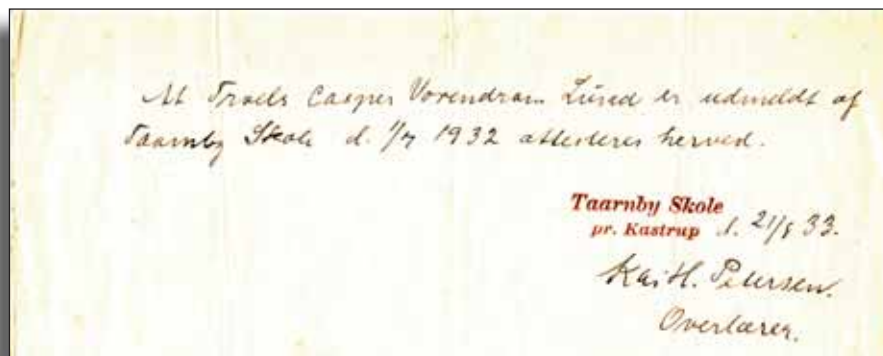 At Troels Casper Vorendram Lund er udmeldt af
Taarnby Skole d. 1/7 1932 attesteres herved.
Taarnby Skole
pr. Kastrup d. 21/8 33.
Kai H. Petersen.
Overlærer.